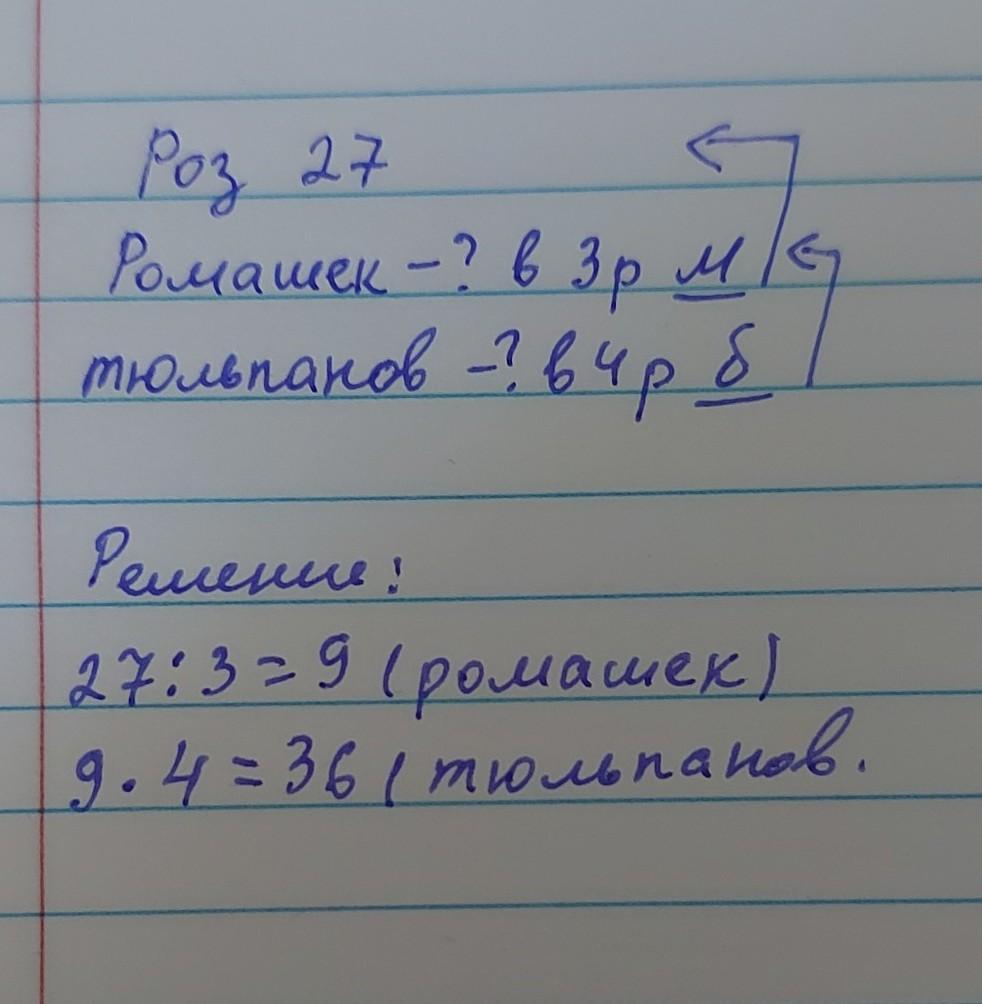 Роз 27
Ромашек -? в 3 р м
тюльпанов -? в 4 р б
Решение:
27:3=9 (ромашек)
9·4=36 (тюльпанов.